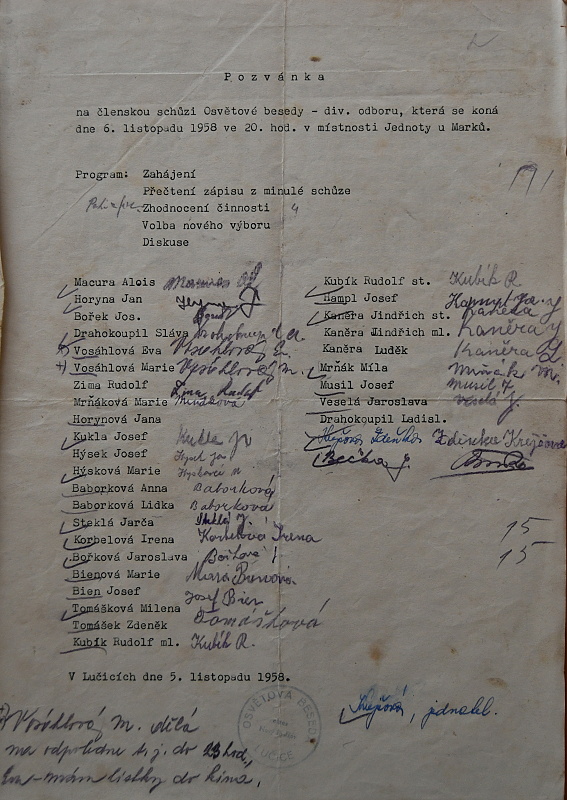 Pozvánka
na členskou schůzi Osvětové besedy - div. odboru, která se koná
dne 6. listopadu 1958 ve 20. hod. v místnosti Jednoty u Marků.
Program: Zahájení
Přečtení zápisu z minulé schůze
Zhodnocení činnosti 4
Volba nového výboru
Diskuse
Macura Alois
Horyna Jan
Bořek Jos.
Drahokoupil Sláva
Vosáhlová Eva Vosáhlová E.
Vosáhlová Marie Vosáhlová M.
Zima Rudolf Zima Rudolf
Mrňáková Marie Mrňáková
Horynová Jana
Kukla Josef Kukla J
Hýsek Josef
Hýsková Marie Hýsková M
Baborková Anna Baborková
Baborková Lidka Baborková
Steklá Jarča Steklá J.
Korbelová Irena Korbelová Irena
Bořková Jaroslava Bořková J
Bienová Marie
Bien Josef Josef Bien
Tomášková Milena Tomášková
Tomášek Zdeněk
Kubík Rudolf ml. Kubík R.
Kubík Rudolf st. Kubík R
Hampl Josef
Kaněra Jindřich st. Kaněra
Kaněra Jindřich ml. Kaněra J
Kaněra Luděk Kaněra L
Mrňák Míla Mrňák M.
Musil Josef Musil J
Veselá Jaroslava Veselá J.
Drahokoupil Ladisl.
Zdeňka
Bečka J.
15
15
V Lučicích dne 5. listopadu 1958.
OSVĚTOVÁ BESEDA
LUČICE
jednatel.
+) Vosáhlová M. dělá
na odpoledne t. j. do 23 hod.,
Eva - mám lístky do kina,